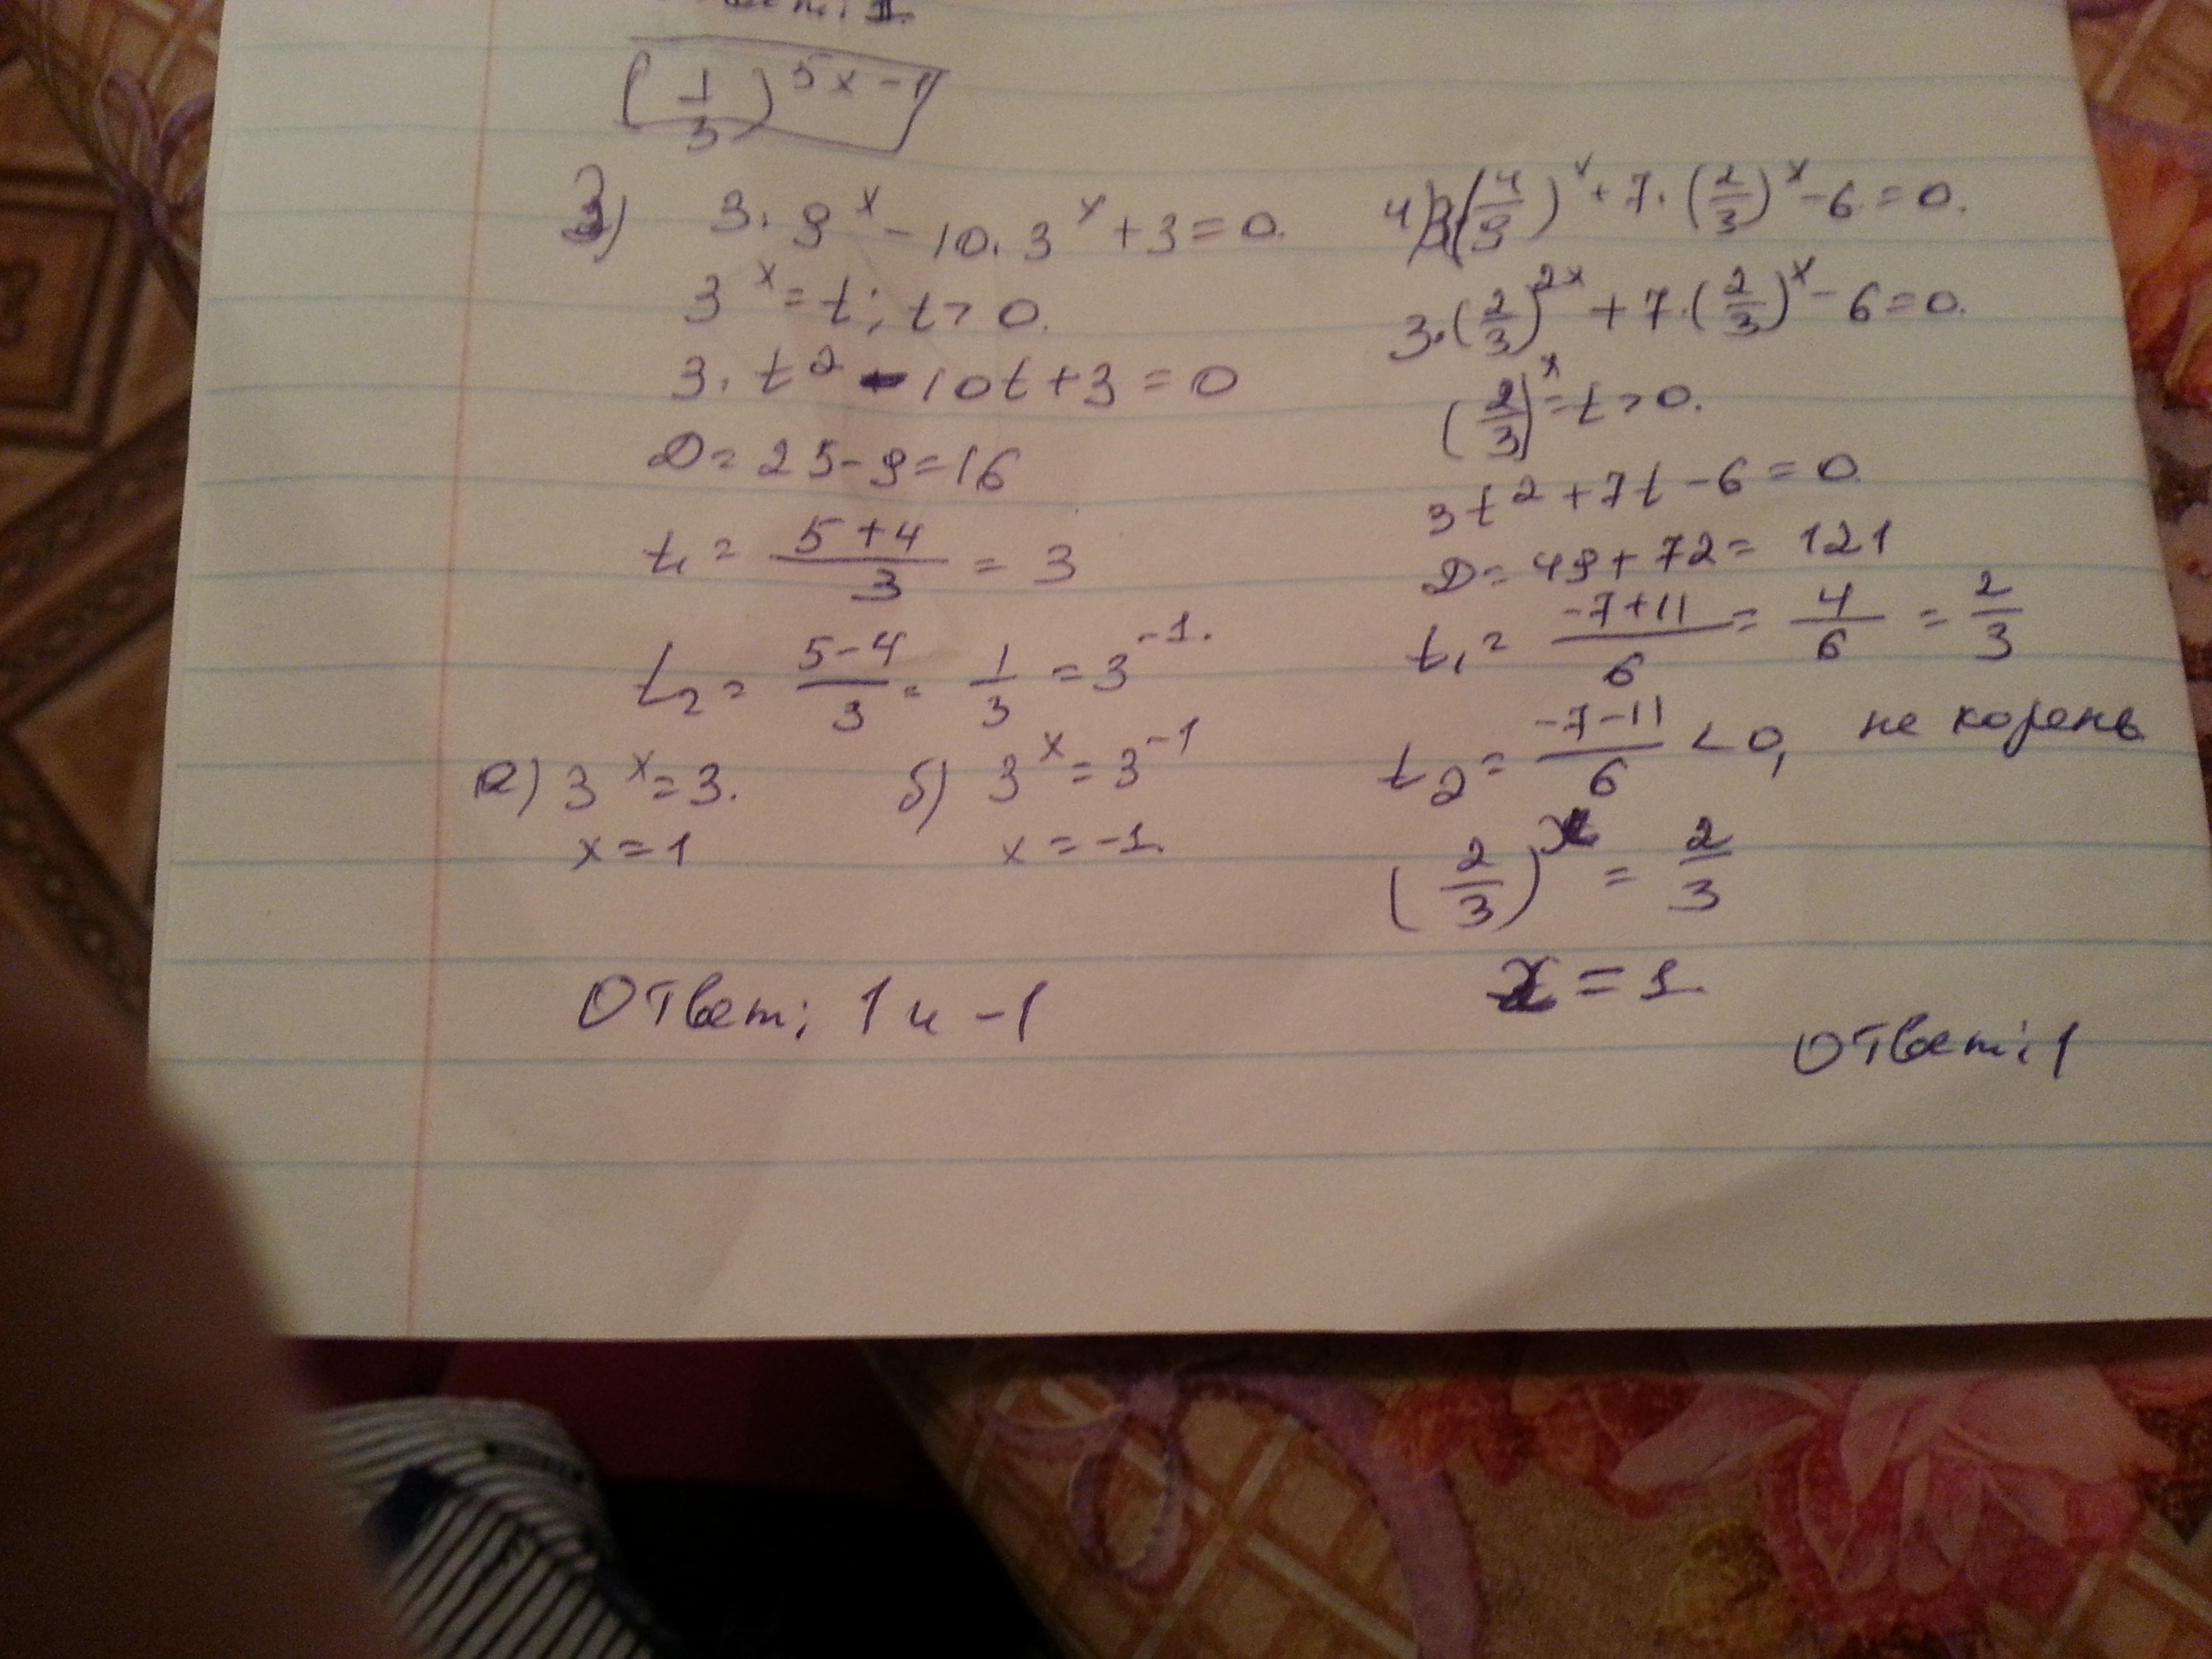 (1/3)^(5x-1)
3) 3·9^x - 10·3^x + 3 = 0.
3^x = t; t > 0.
3·t² - 10t + 3 = 0
D = 25 - 9 = 16
t₁ = (5+4)/3 = 3
t₂ = (5-4)/3 = 1/3 = 3^(-1).
а) 3^x = 3. б) 3^x = 3^(-1)
x = 1 x = -1.
Ответ: 1 и -1
4) 3(4/9)^x + 7·(2/3)^x - 6 = 0.
3·(2/3)^(2x) + 7·(2/3)^x - 6 = 0.
(2/3)^x = t > 0.
3t² + 7t - 6 = 0
D = 49 + 72 = 121
t₁ = (-7+11)/6 = 4/6 = 2/3
t₂ = (-7-11)/6 < 0, не корень
(2/3)^x = 2/3
x = 1.
Ответ: 1